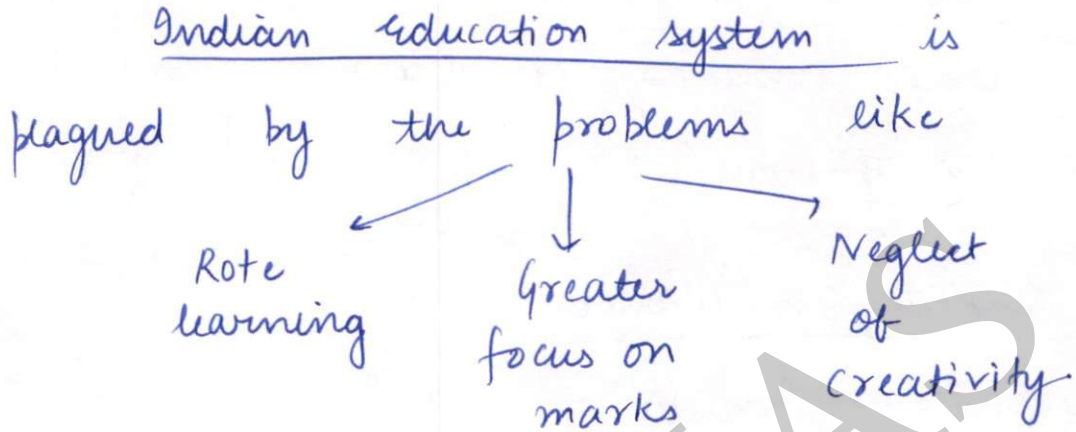 Indian education system is
plagued by the problems like
Rote
learning
Greater
focus on
marks
Neglect
of
creativity.
AS